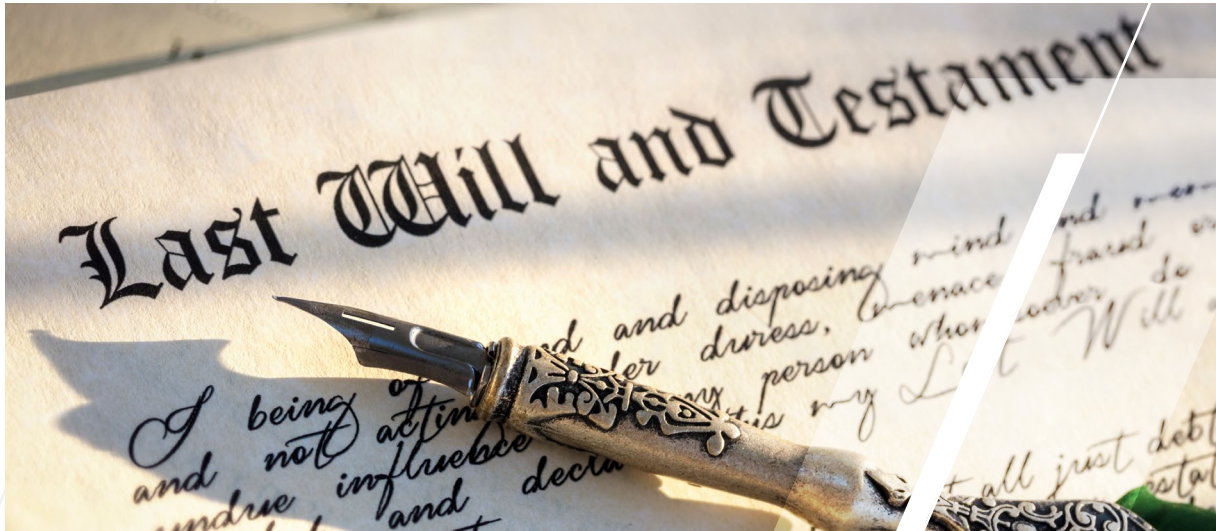 Last Will and Testament
I being of and disposing mind and
and not acting der duress, menace, fraud
undue influence my person whomsoever do
and declare this my Last Will
all just debt